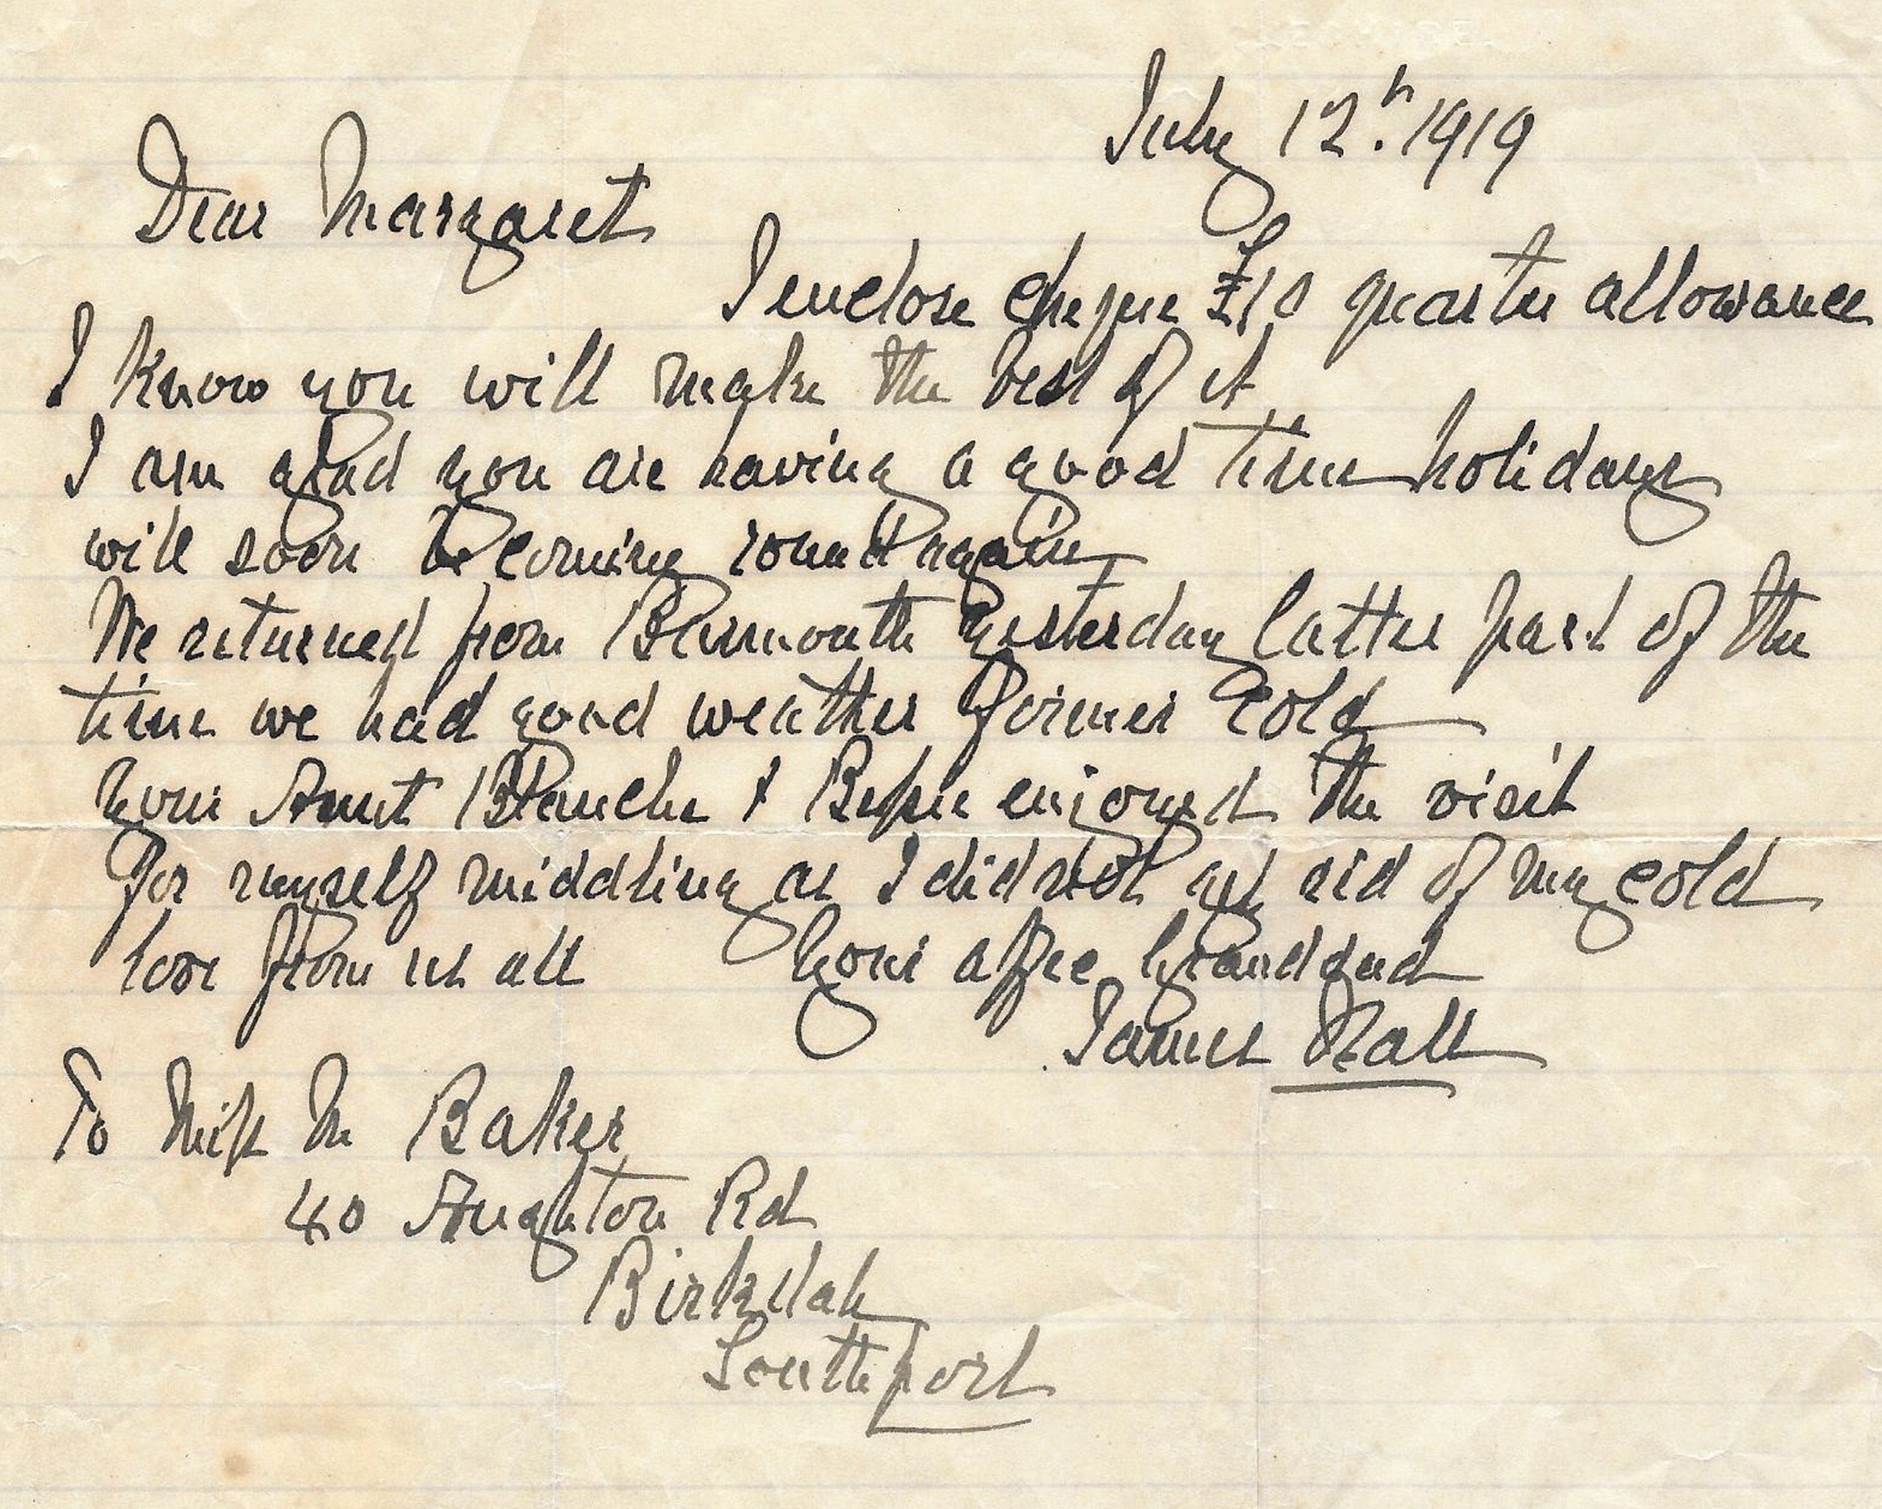 July 12th. 1919
Dear Margaret
I enclose cheque £10 quarter allowance
I know you will make the best of it
I am glad you are having a good time holidays
will soon be coming round again
We returned from yesterday latter part of the
time we had good weather former cold
Your Aunt Blanche & enjoyed the visit
For myself middling as I did not get rid of my cold
love from us all Your affec Granddad
James
To Miss M Baker
40 Aughton Rd
Birkdale
Southport